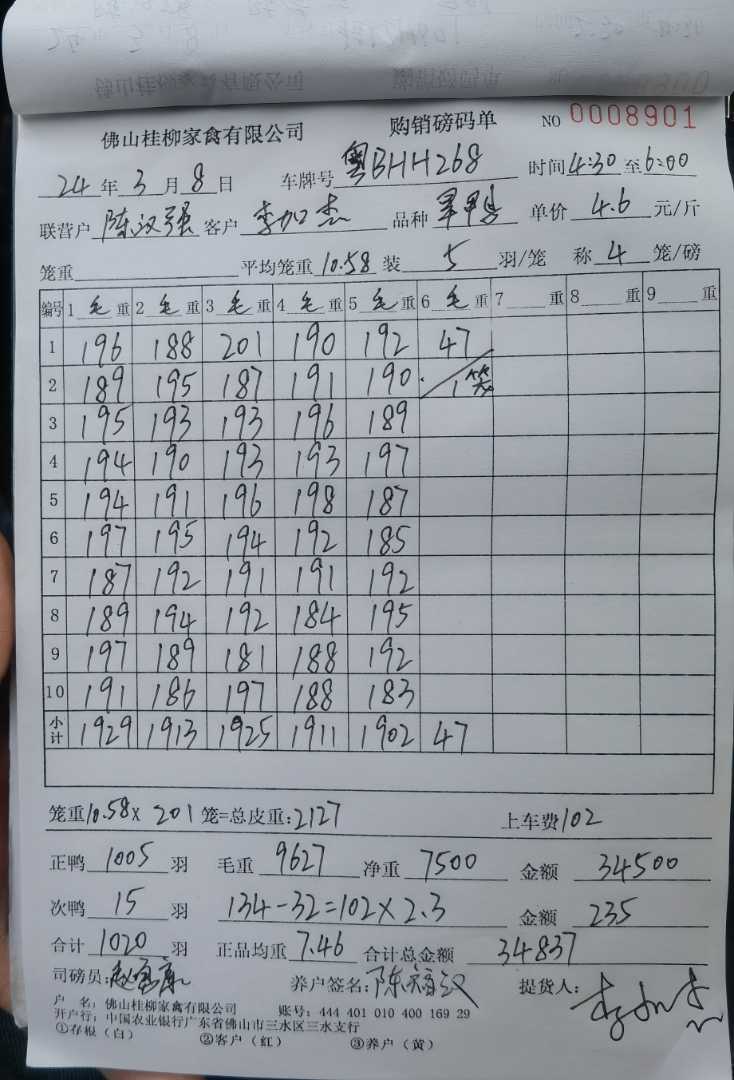 佛山桂柳家禽有限公司 购销磅码单 NO 0008901
24 年 3 月 8 日 车牌号 粤BHH268 时间 4:30 至 6:00
联营户 陈汉强 客户 李加杰 品种 单价 4.6 元/斤
笼重 平均笼重 10.58 装 5 羽/笼 称 4 笼/磅
编号 1 毛 重 2 毛 重 3 毛 重 4 毛 重 5 毛 重 6 毛 重 7 重 8 重 9 重
1 196 188 201 190 192 47
2 189 195 187 191 190 1笼
3 195 193 193 196 189
4 194 190 193 193 197
5 194 191 196 198 187
6 197 195 194 192 185
7 187 192 191 191 192
8 189 194 192 184 195
9 197 189 181 188 192
10 191 186 197 188 183
小计 1929 1913 1925 1911 1902 47
笼重 10.58 × 201 笼=总皮重: 2127 上车费 102
正鸭 1005 羽 毛重 9627 净重 7500 金额 34500
次鸭 15 羽 134-32=102×2.3 金额 235
合计 1020 羽 正品均重 7.46 合计总金额 34837
司磅员: 养户签名: 提货人:
户 名: 佛山桂柳家禽有限公司 账号: 444 401 010 400 169 29
开户行: 中国农业银行广东省佛山市三水区三水支行
①存根（白） ②客户（红） ③养户（黄）